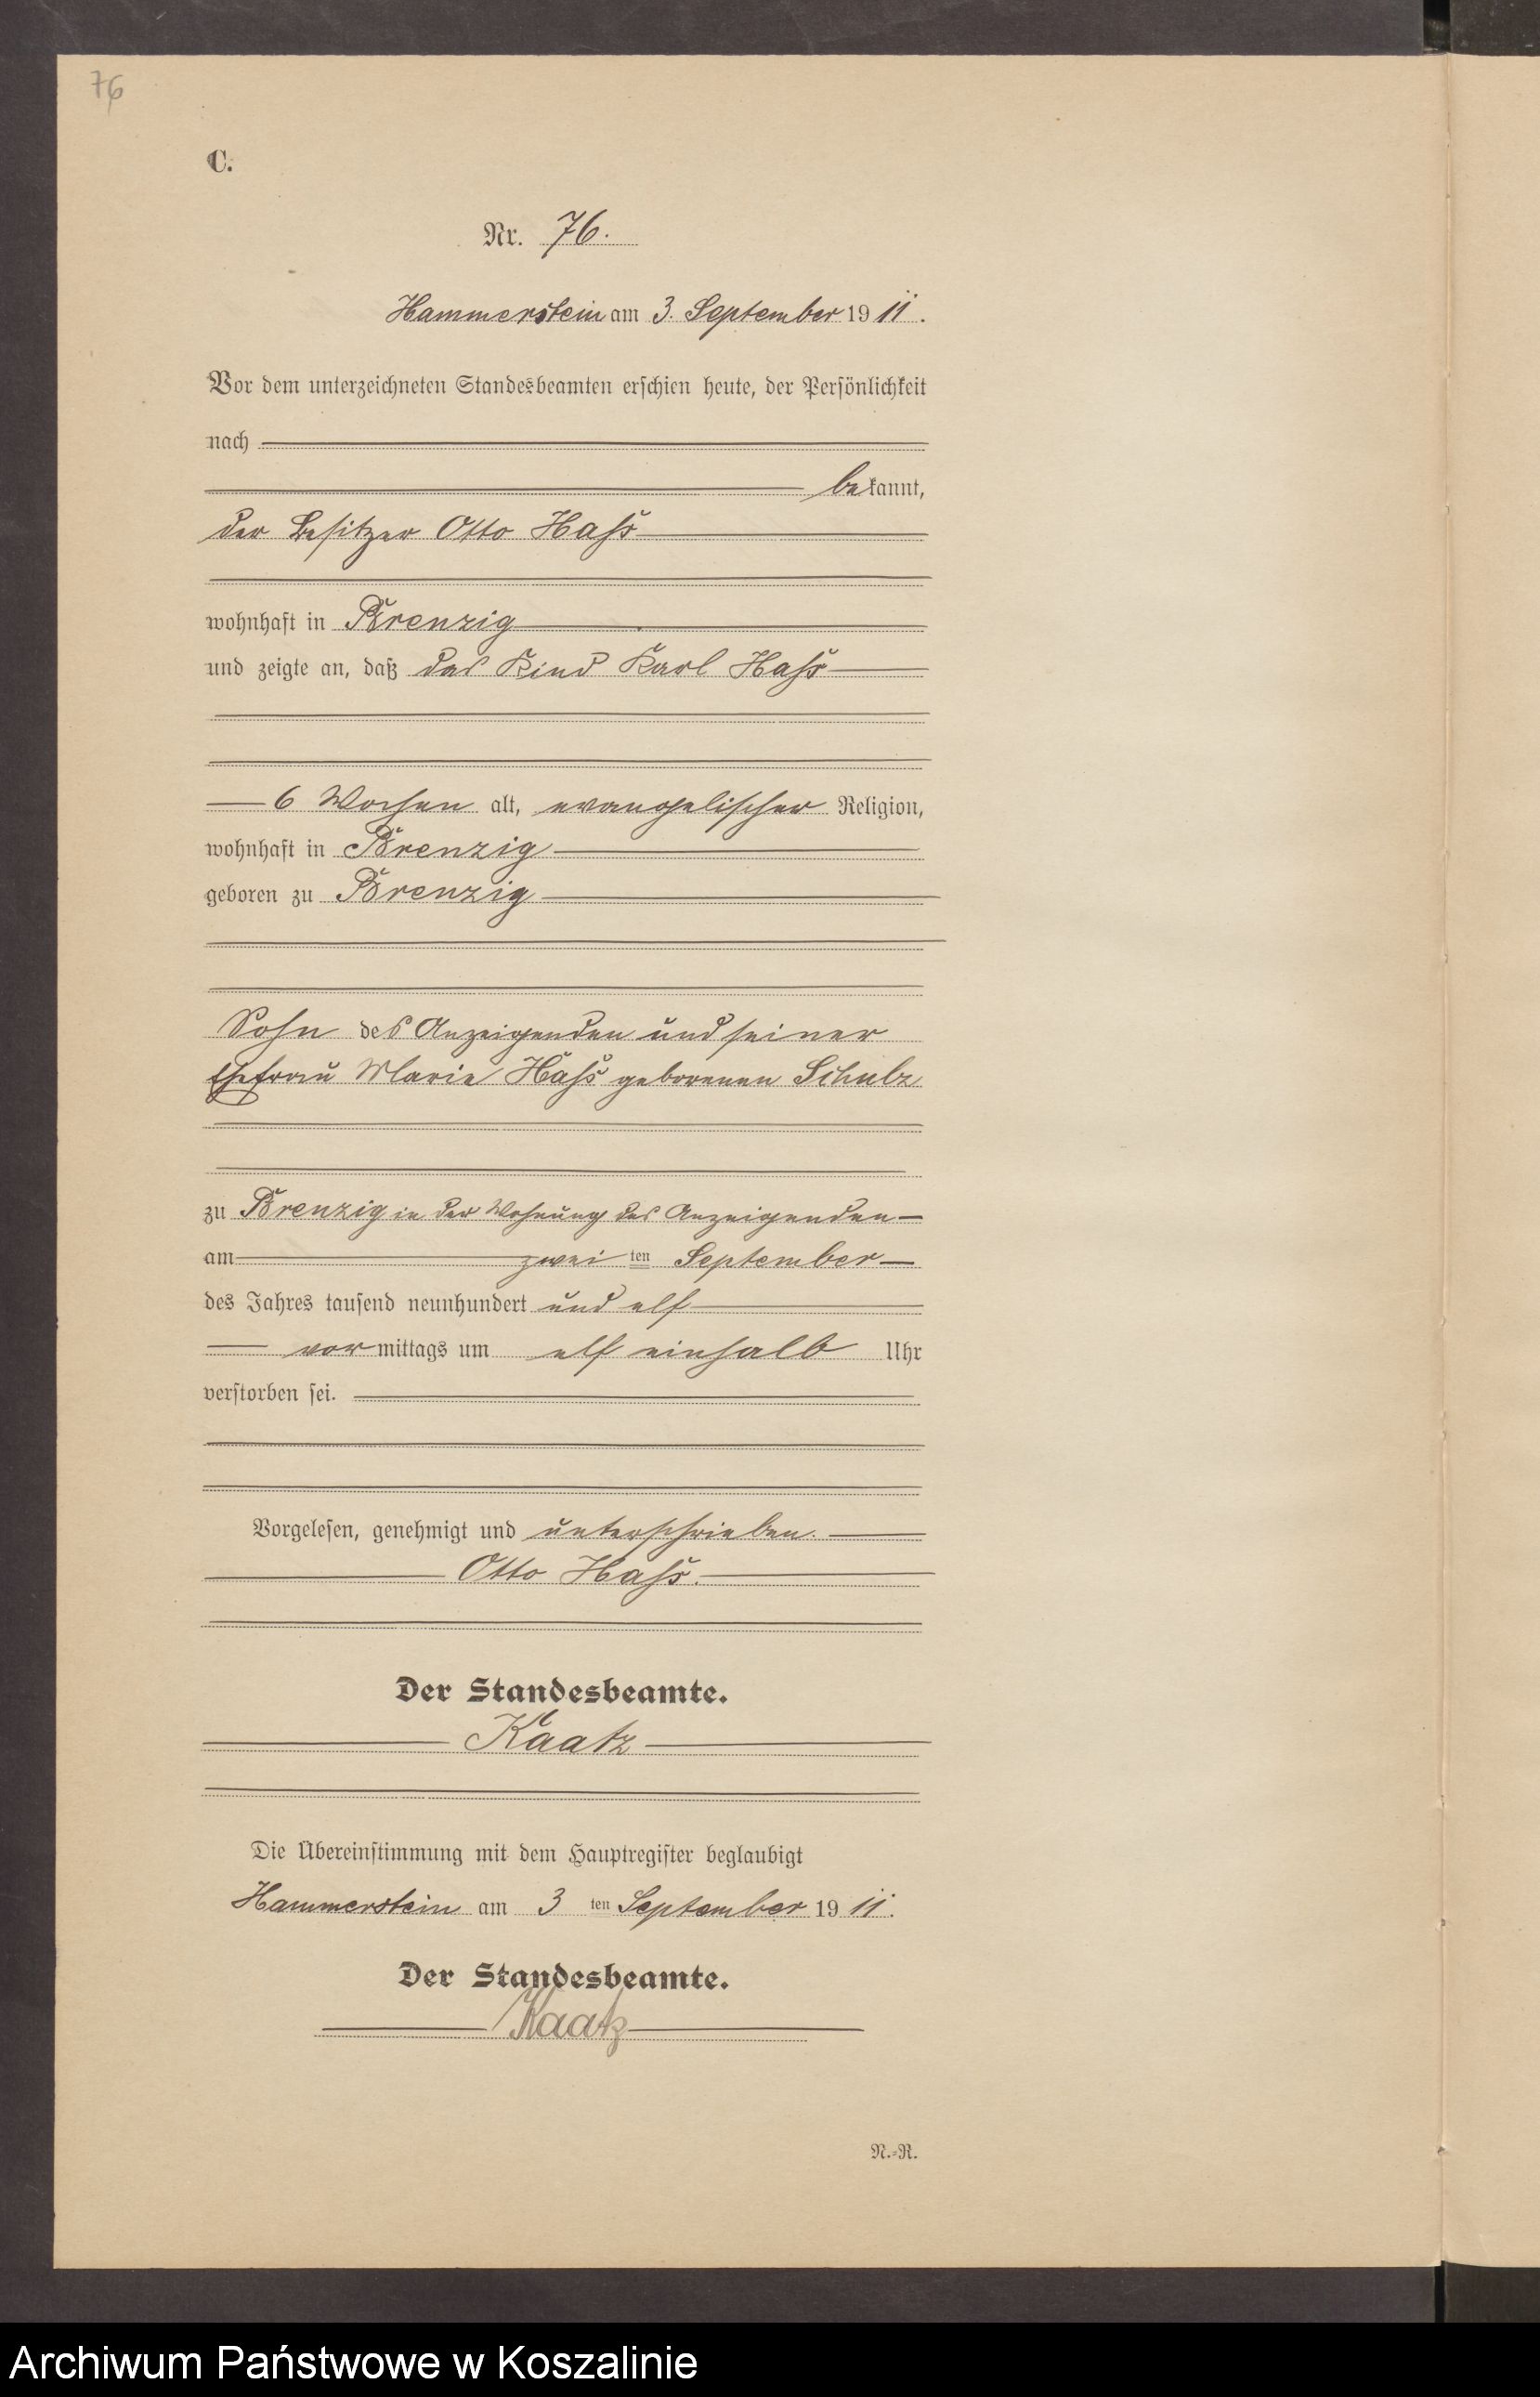 76
C.
Nr. 76.
Hammerstein am 3. September 1911.
Vor dem unterzeichneten Standesbeamten erschien heute, der Persönlichkeit
nach
bekannt,
der Besitzer Otto Haß
wohnhaft in Brenzig
und zeigte an, daß das Kind Karl Haß
6 Wochen alt, evangelischer Religion,
wohnhaft in Brenzig
geboren zu Brenzig
Sohn des Anzeigenden und seiner
Ehefrau Marie Haß geborenen Schulz
zu Brenzig in der Wohnung des Anzeigenden
am zwei ten September
des Jahres tausend neunhundert und elf
vor mittags um elf einhalb Uhr
verstorben sei.
Vorgelesen, genehmigt und unterschrieben.
Otto Haß.
Der Standesbeamte.
Kaatz
Die Übereinstimmung mit dem Hauptregister beglaubigt
Hammerstein am 3 ten September 1911.
Der Standesbeamte.
Kaatz
N.-R.
Archiwum Państwowe w Koszalinie